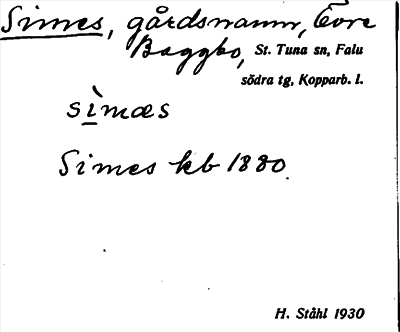 Simes, gårdsnamn, Tore
Baggbo, St. Tuna sn, Falu
södra tg, Kopparb. l.
sìmæs
Simes kb 1880.
H. Ståhl 1930